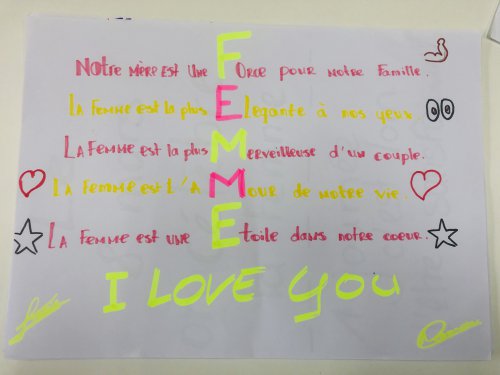 Notre mère est une Force pour notre famille.
La femme est la plus Elegante à nos yeux.
La femme est la plus Merveilleuse d'un couple.
La femme est l'AMour de notre vie.
La femme est une Etoile dans notre coeur.
I LOVE YOU